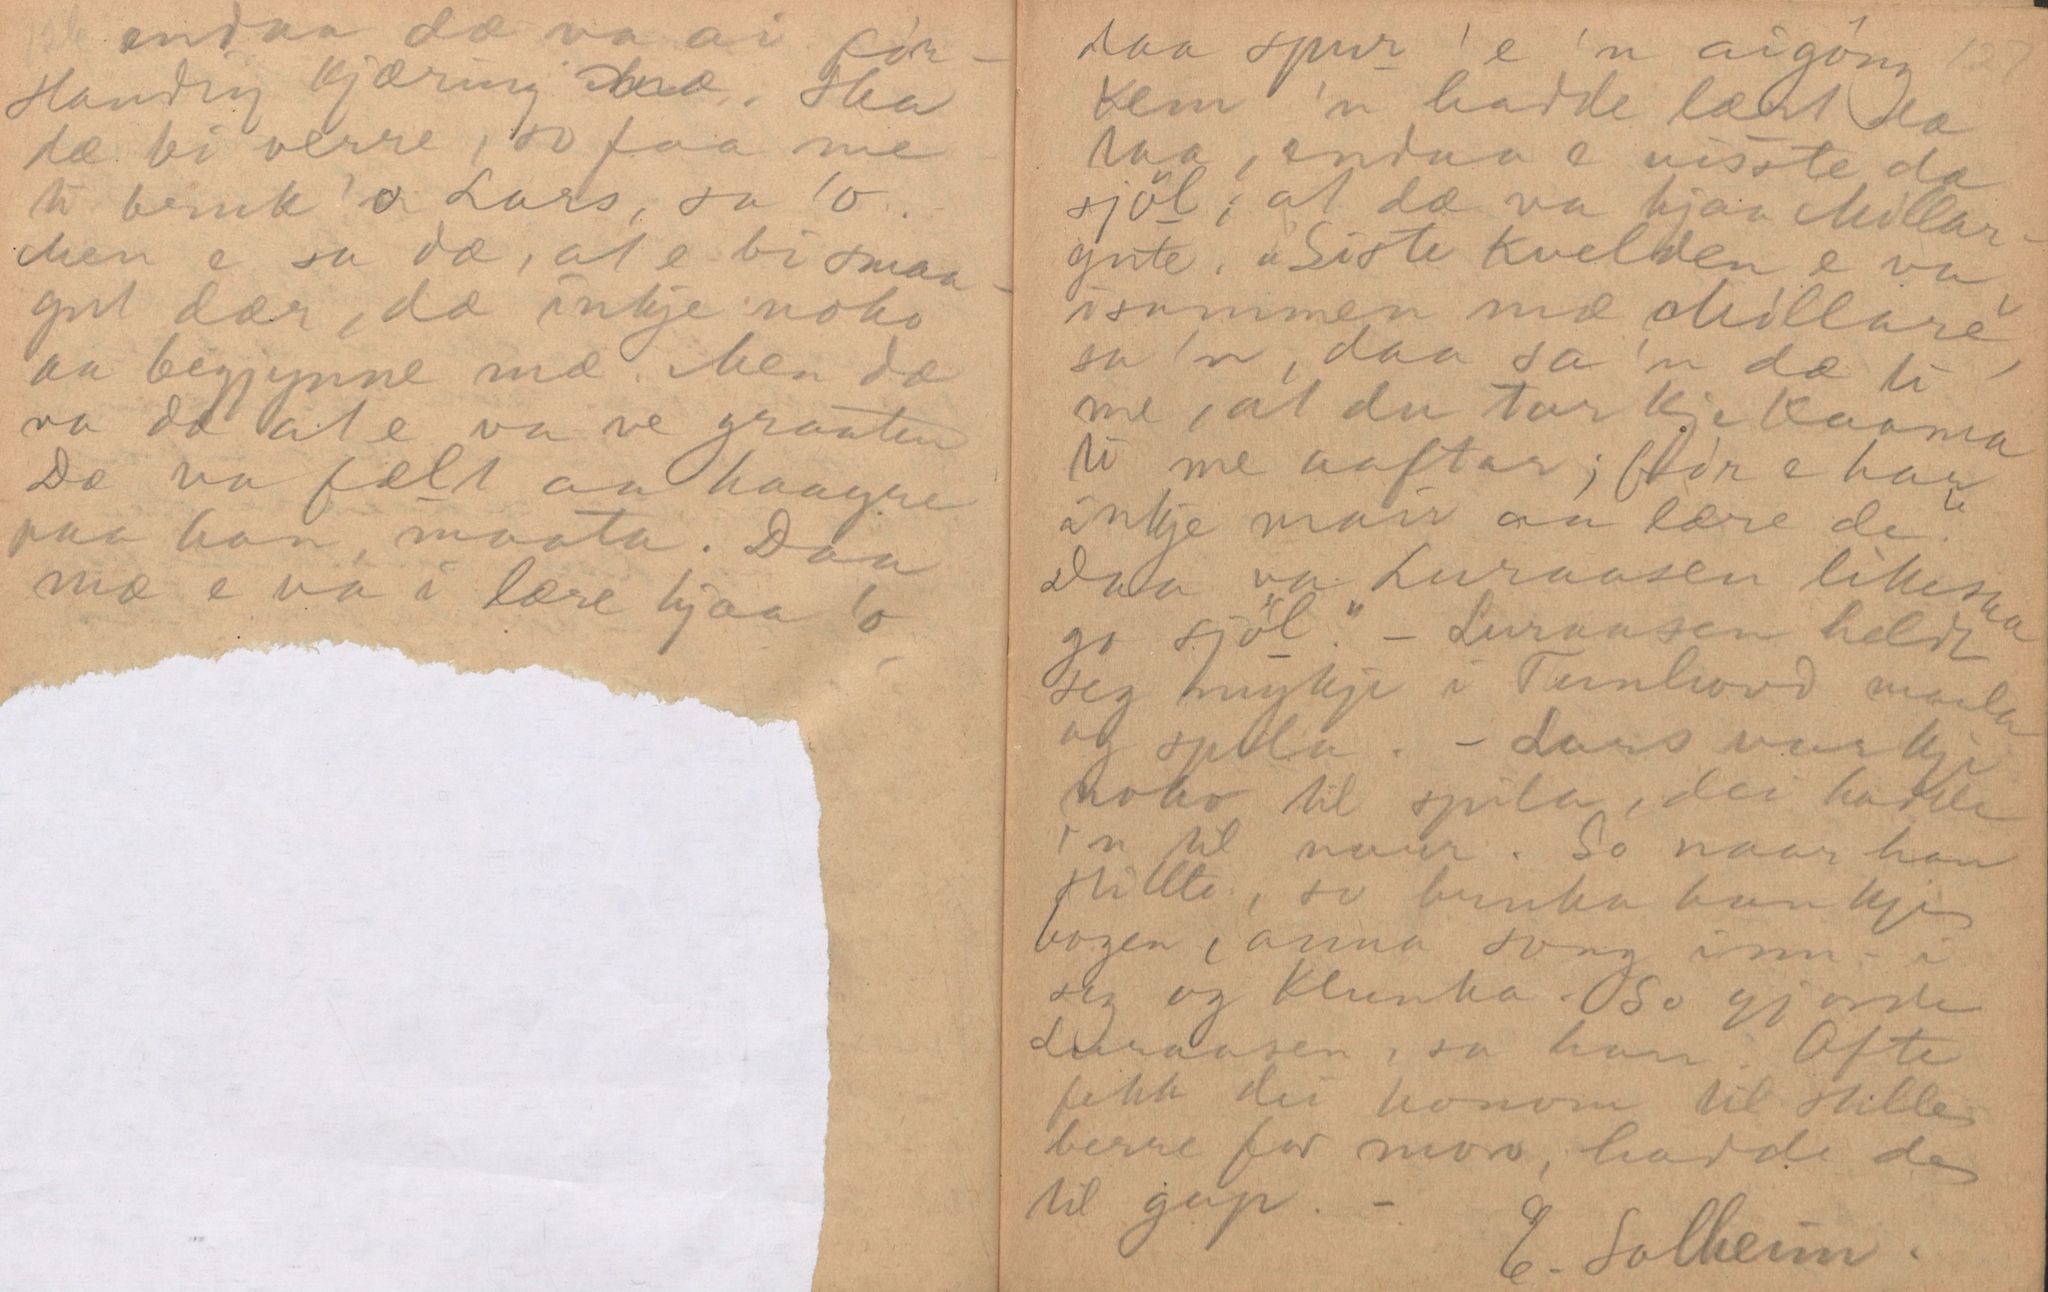 126
endaa dæ va ai för-
standig kjæring mæ. Ska
dæ bi verre, so faa me
ti bruk 'a Lars, sa 'o.
Men e sa dæ, at e bi smaa-
gut dær, dæ inkje noko
aa begjynne mæ. Men dæ
va dæ at e va ve graaten
Dæ va fælt aa haagse
paa han, maata. Daa
mæ e va i lære hjaa 'o
127
daa spur 'e 'n aigöng
kem 'n hadde lært dæ
taa, endaa e visste dæ
sjöl, at dæ va hjaa Millar-
gute. "Siste kvelden e va
isammen mæ Millare,
sa 'n, daa sa 'n dæ ti
me, at du tar kje kaama
ti me aaftar; för e har
inkje mair aa lære de."
Daa va Luraasen likeska
go sjöl." - Luraasen heldt
seg mykje i Tunhovd maala
og spela. - Lars var kje
noko til spila, dei hadde
'n til narr. So naar han
stillte, so bruka han kje
bogen, anna song inn-i
seg og klunka. So gjorde
Luraasen, sa han. Ofte
fekk dei honom til stille
berre for moro, hadde de
til gap. -
E. Solheim.